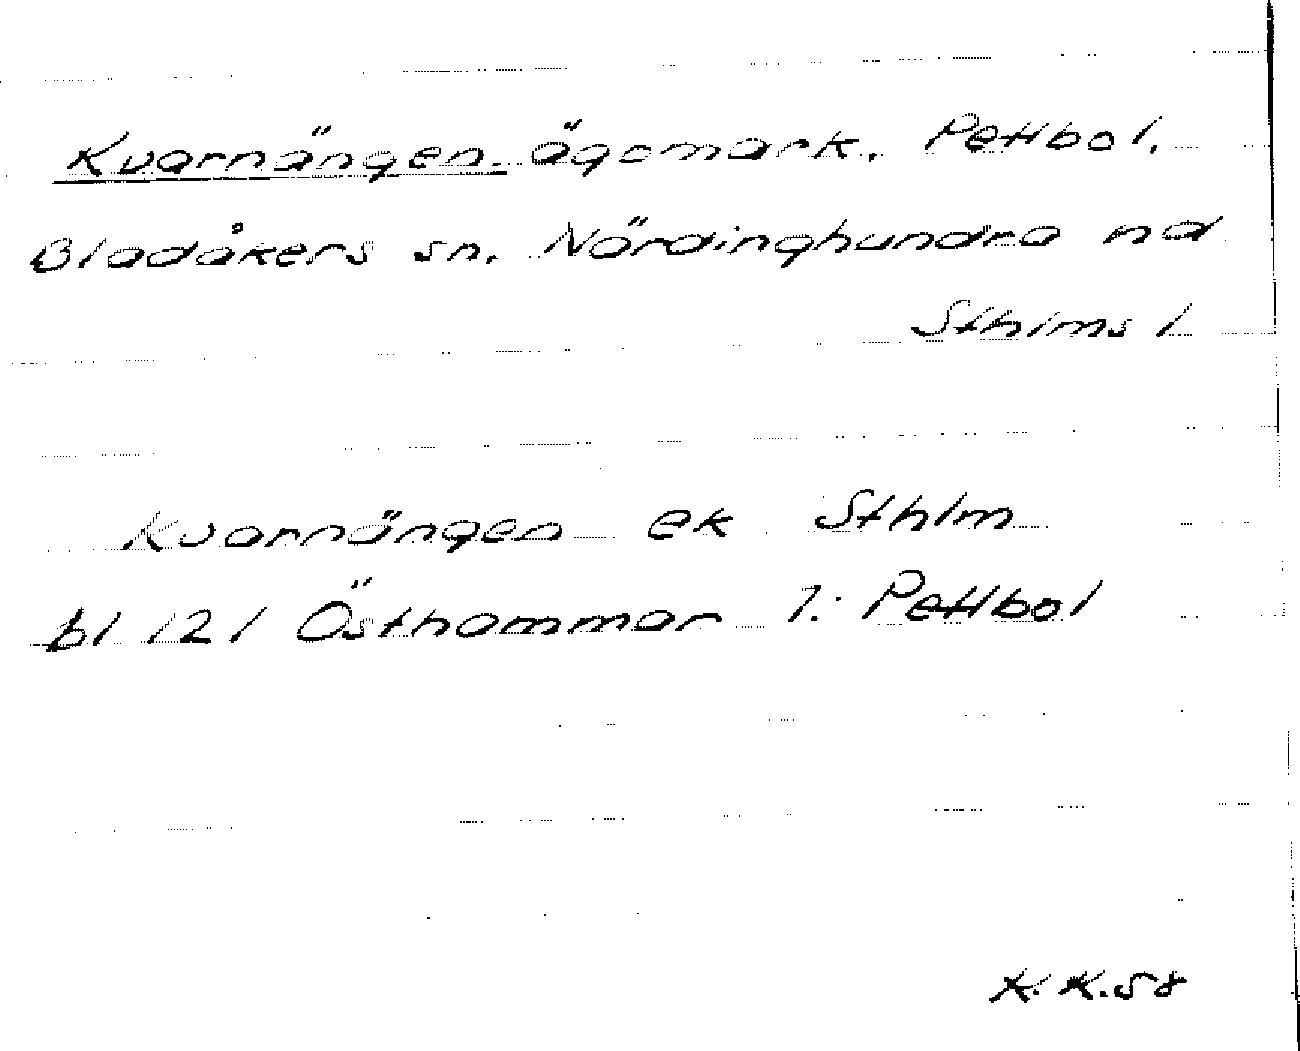 Kvarnängen. ägomark. Pettbol.
Bladåkers sn. Närdinghundra hd
Sthlms l
Kvarnängen ek Sthlm
bl 121 Östhammar 1: Pettbol
K.K.58